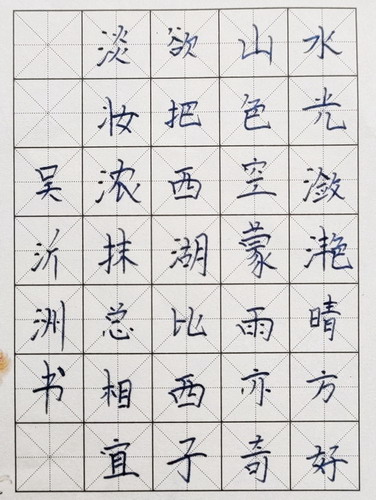 水光潋滟晴方好
山色空蒙雨亦奇
欲把西湖比西子
淡妆浓抹总相宜
吴沂洲书